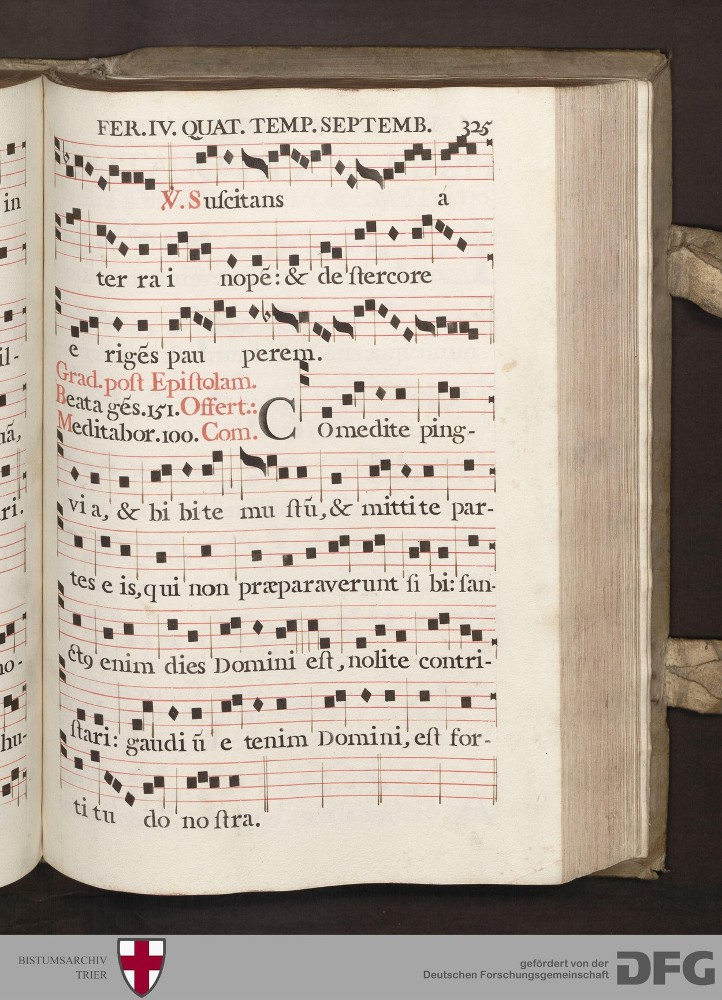 FER. IV. QUAT. TEMP. SEPTEMB. 325
in
℣. Suſcitans a
ter ra i nopē: & de ſtercore
e rigēs pau perem.
il-
Grad. poſt Epiſtolam.
Beata gēs. 151. Offert.:
Meditabor. 100. Com. Comedite ping-
uā,
vi a, & bi bi te mu ſtū, & mittite par-
ri.
tes e is, qui non præparaverunt ſi bi: ſan-
ct9 enim dies Domini eſt, nolite contri-
no-
ſtari: gaudi ū e tenim Domini, eſt for-
hu-
ti tu do no ſtra.
BISTUMSARCHIV
TRIER
gefördert von der
Deutschen Forschungsgemeinschaft
DFG